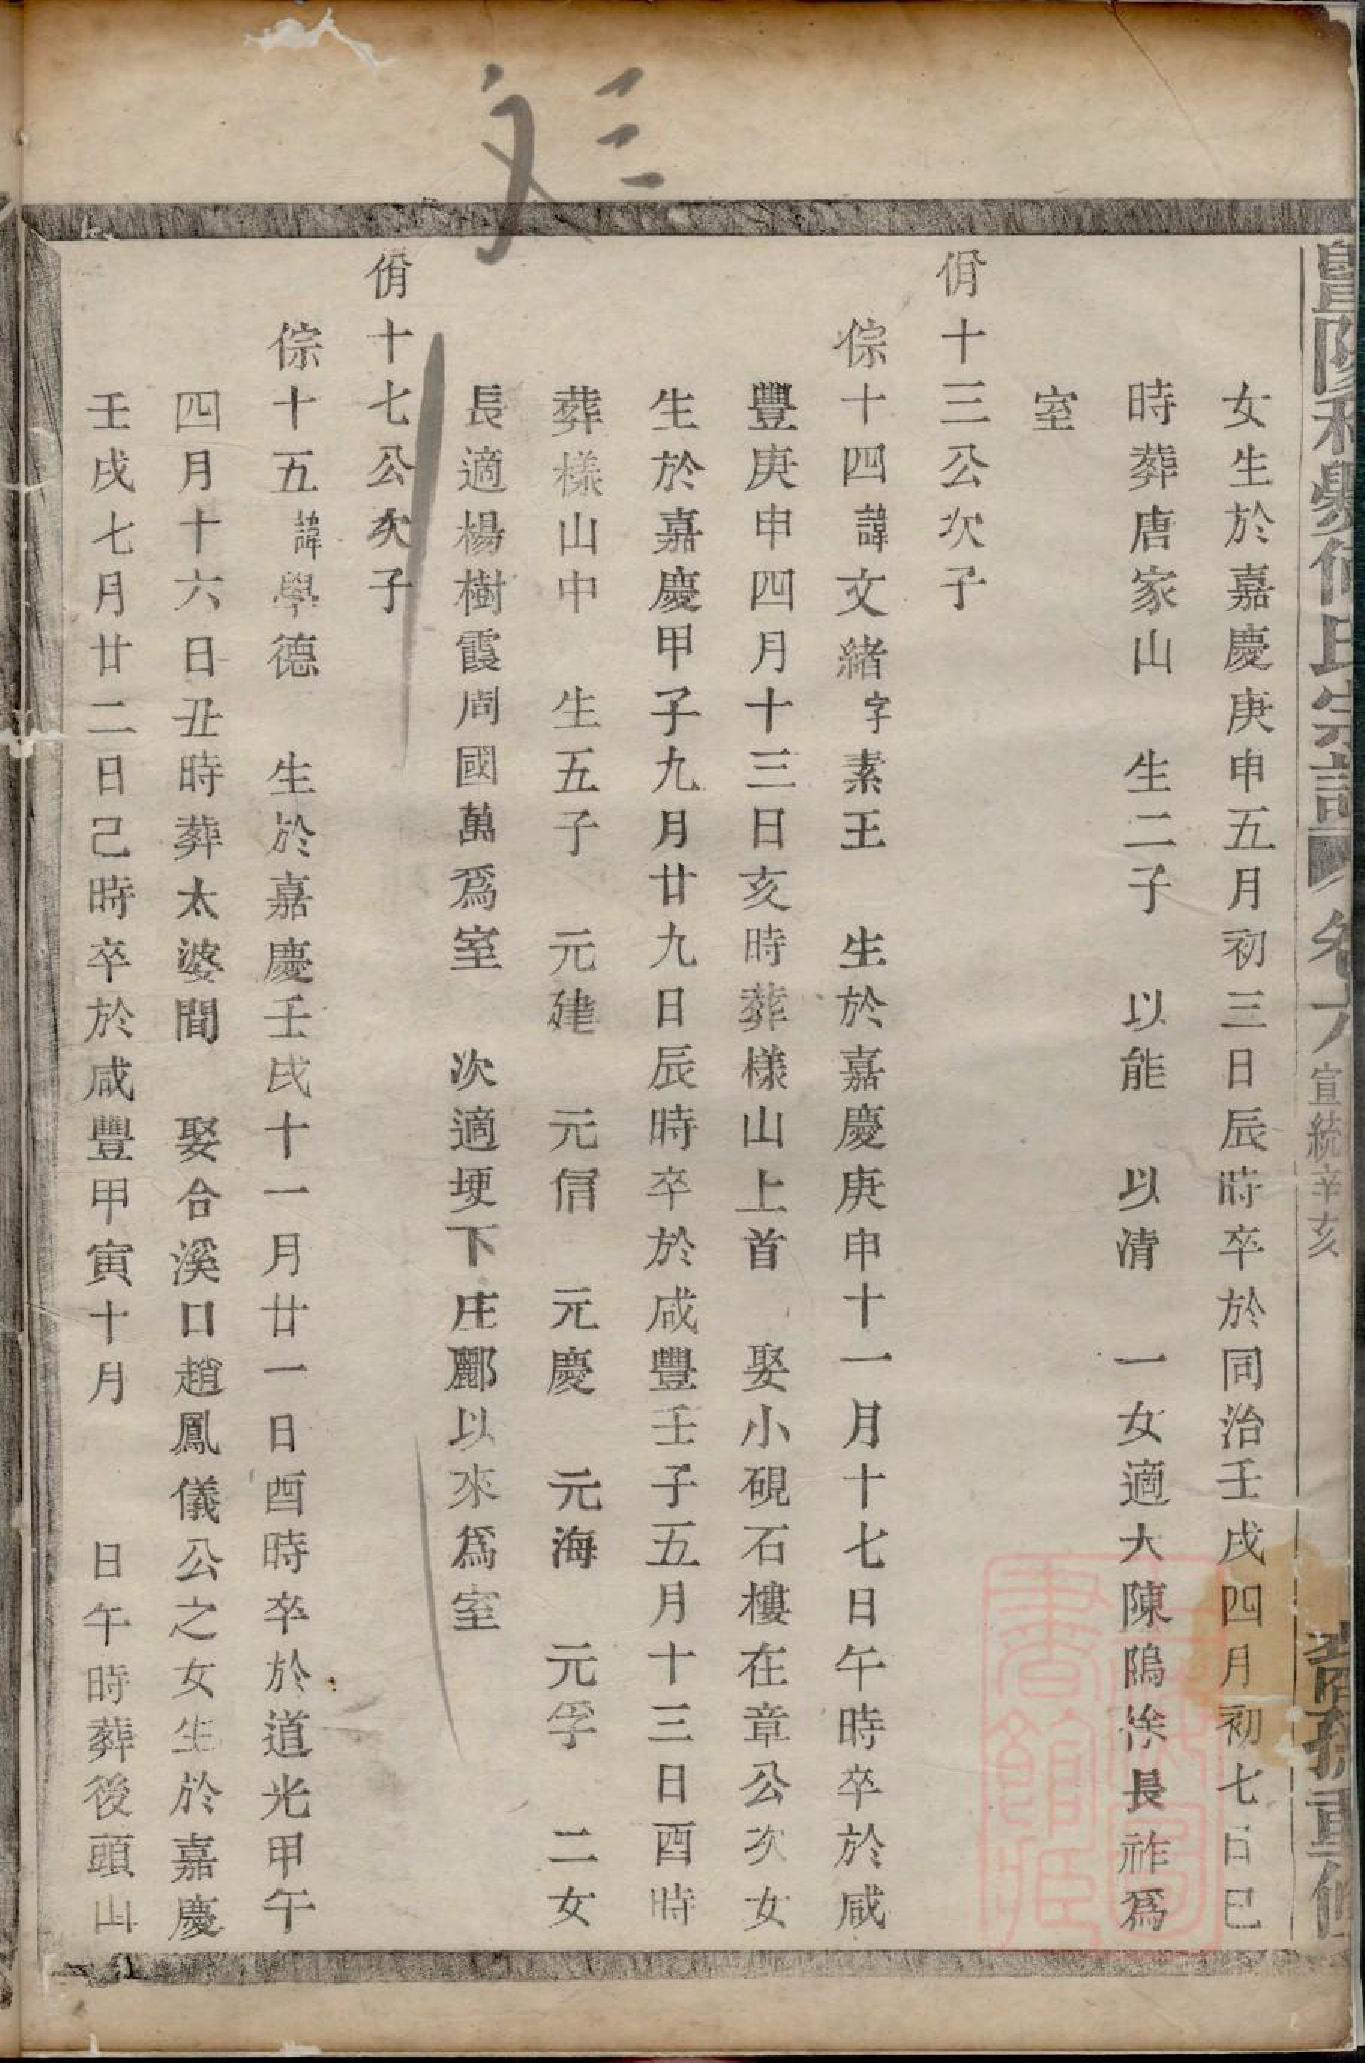 三
文
卷六 宣統辛亥
重修
女生於嘉慶庚申五月初三日辰時卒於同治壬戌四月初七日巳
時葬唐家山 生二子 以能 以清 一女適大陳隖徐長祚爲
室
佾十三公次子
倧十四諱文緒字素王 生於嘉慶庚申十一月十七日午時卒於咸
豐庚申四月十三日亥時葬樣山上首 娶小硯石樓在章公次女
生於嘉慶甲子九月廿九日辰時卒於咸豐壬子五月十三日酉時
葬樣山中 生五子 元建 元信 元慶 元海 元孚 二女
長適楊樹霞周國萬爲室 次適埂下庄酈以來爲室
佾十七公次子
倧十五諱學德 生於嘉慶壬戌十一月廿一日酉時卒於道光甲午
四月十六日丑時葬太婆間 娶合溪口趙鳳儀公之女生於嘉慶
壬戌七月廿二日己時卒於咸豐甲寅十月 日午時葬後頭山